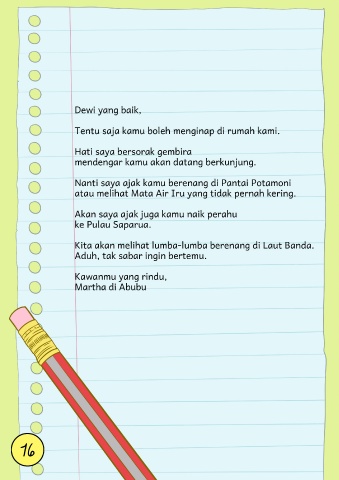 Dewi yang baik,
Tentu saja kamu boleh menginap di rumah kami.
Hati saya bersorak gembira
mendengar kamu akan datang berkunjung.
Nanti saya ajak kamu berenang di Pantai Potamoni
atau melihat Mata Air Iru yang tidak pernah kering.
Akan saya ajak juga kamu naik perahu
ke Pulau Saparua.
Kita akan melihat lumba-lumba berenang di Laut Banda.
Aduh, tak sabar ingin bertemu.
Kawanmu yang rindu,
Martha di Abubu
16